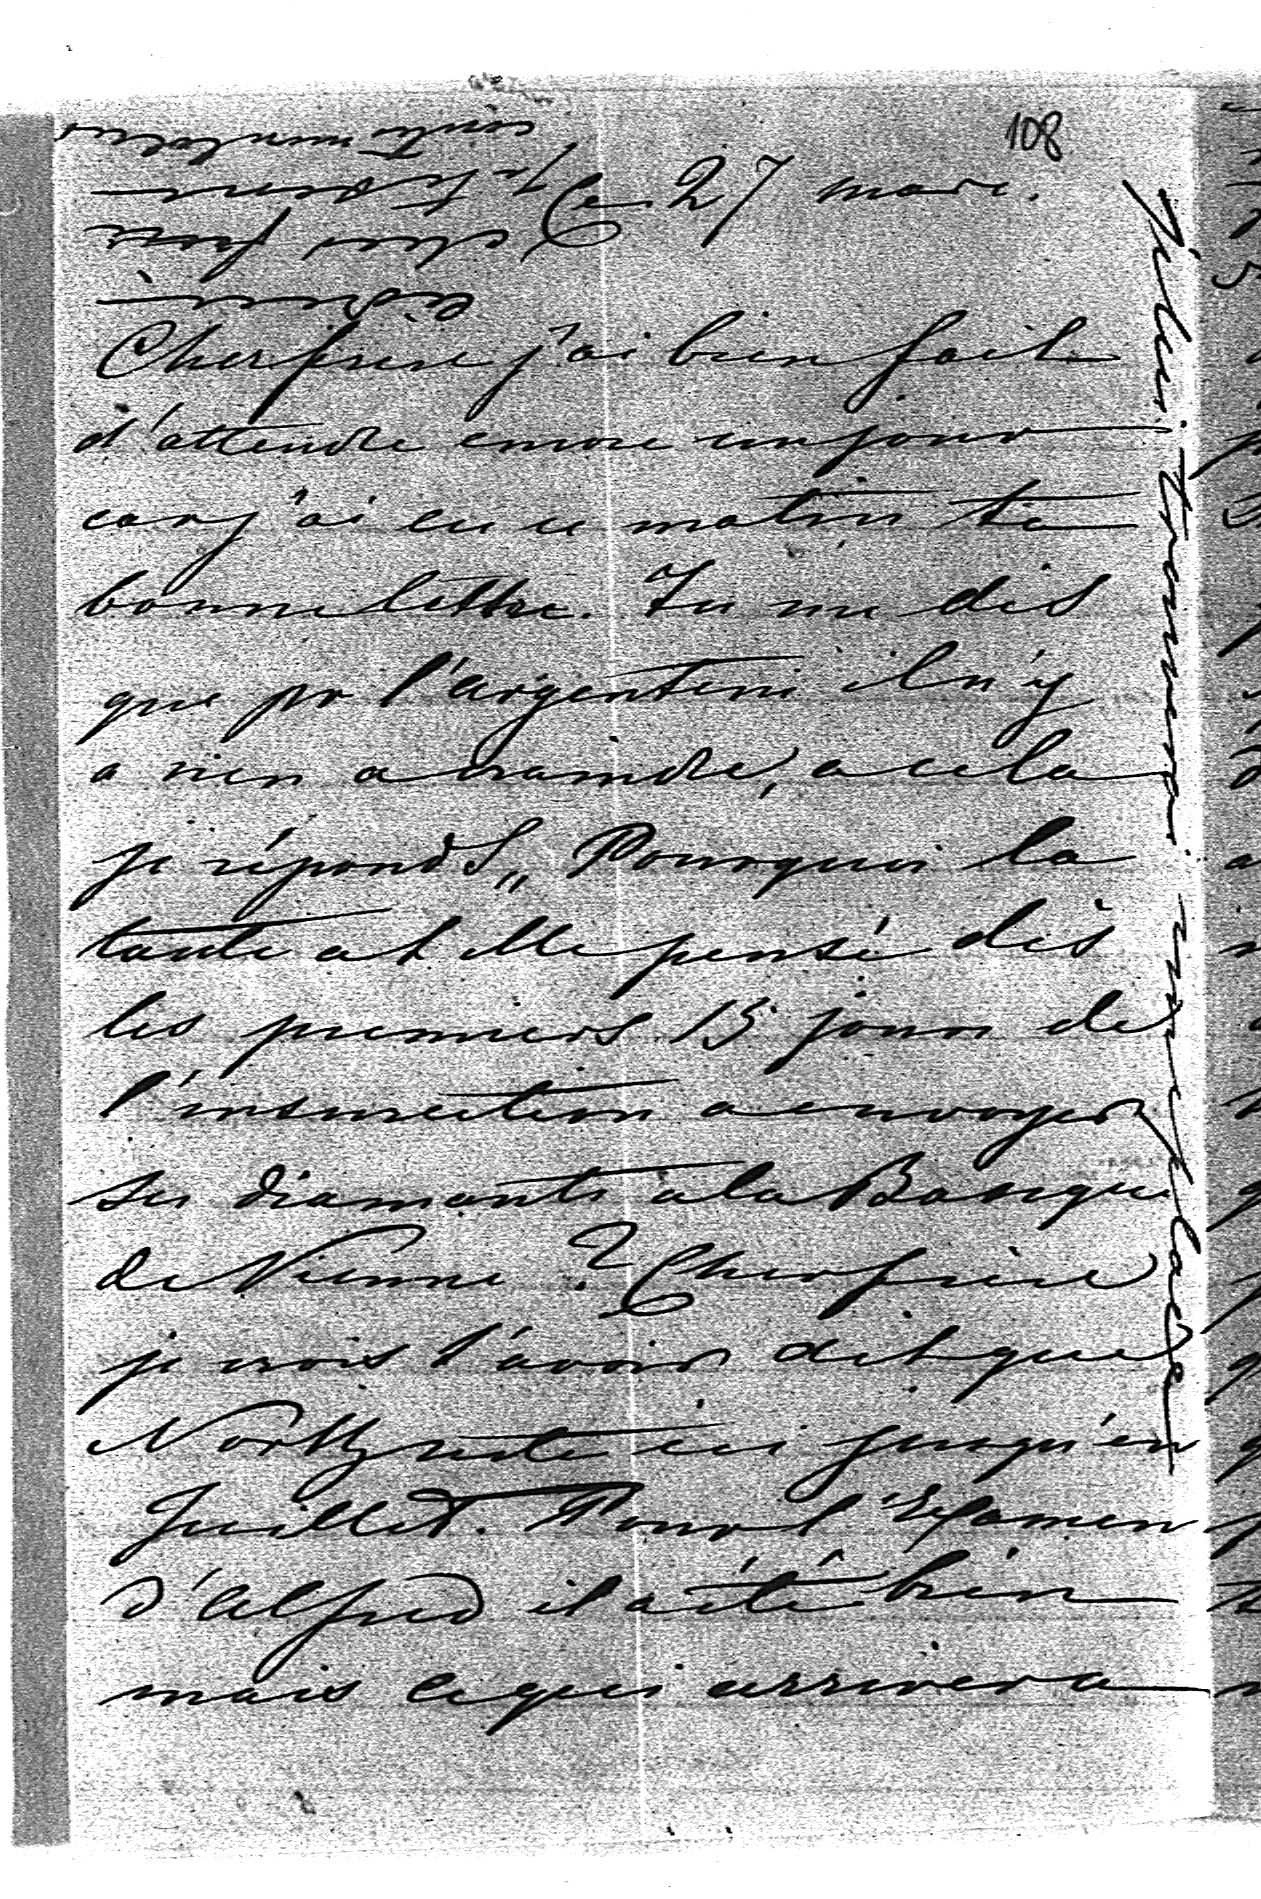 108
Ce 27 mars.
Cher frère j'ai bien fait
d'attendre encore un jour
car j'ai eu ce matin ta
bonne lettre. Tu me dis
que pr l'argenterie il n'y
a rien a craindre, a cela
je réponds „ Pourquoi la
tante a t elle pensé dès
les premiers 15 jours de
l'insurection a envoyer
ses diamants a la Banque
de Vienne ? Cher frère
je crois t'avoir dit que
reste ici jusqu'en
Juillet. Pour l'Examen
d'Alfred il a été bien
mais ce qui arrivera